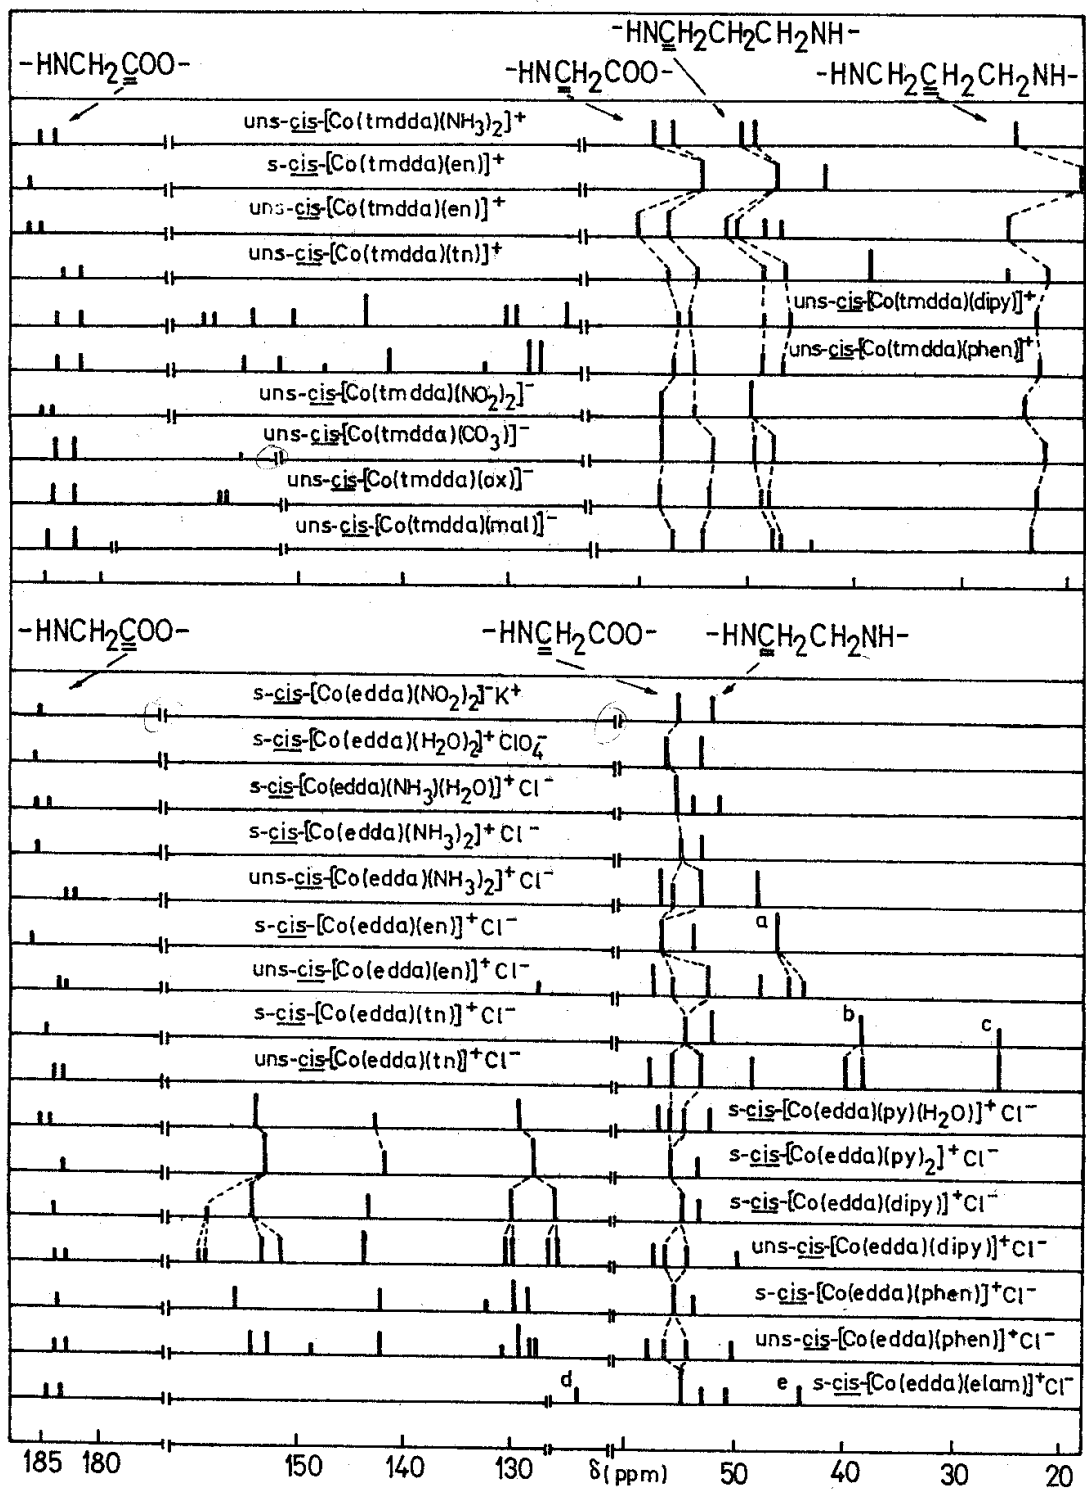 -HNCH2CH2CH2NH-
-HNCH2COO- -HNCH2COO- -HNCH2CH2CH2NH-
uns-cis-[Co(tmdda)(NH3)2]+
s-cis-[Co(tmdda)(en)]+
uns-cis-[Co(tmdda)(en)]+
uns-cis-[Co(tmdda)(tn)]+
uns-cis-[Co(tmdda)(dipy)]+
uns-cis-[Co(tmdda)(phen)]+
uns-cis-[Co(tmdda)(NO2)2]-
uns-cis-[Co(tmdda)(CO3)]-
uns-cis-[Co(tmdda)(ox)]-
uns-cis-[Co(tmdda)(mal)]-
-HNCH2COO- -HNCH2COO- -HNCH2CH2NH-
s-cis-[Co(edda)(NO2)2]-K+
s-cis-[Co(edda)(H2O)2]+ClO4-
s-cis-[Co(edda)(NH3)(H2O)]+Cl-
s-cis-[Co(edda)(NH3)2]+Cl-
uns-cis-[Co(edda)(NH3)2]+Cl-
s-cis-[Co(edda)(en)]+Cl- a
uns-cis-[Co(edda)(en)]+Cl-
s-cis-[Co(edda)(tn)]+Cl- b c
uns-cis-[Co(edda)(tn)]+Cl-
s-cis-[Co(edda)(py)(H2O)]+Cl-
s-cis-[Co(edda)(py)2]+Cl-
s-cis-[Co(edda)(dipy)]+Cl-
uns-cis-[Co(edda)(dipy)]+Cl-
s-cis-[Co(edda)(phen)]+Cl-
uns-cis-[Co(edda)(phen)]+Cl-
d e s-cis-[Co(edda)(elam)]+Cl-
185 180 150 140 130 δ(ppm) 50 40 30 20